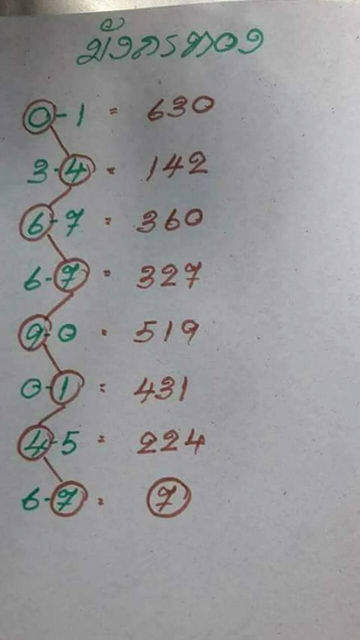 มังกรทอง
0-1 = 630
3-4 = 142
6-7 = 360
6-7 = 327
9-0 = 519
0-1 = 431
4-5 = 224
6-7 = 7